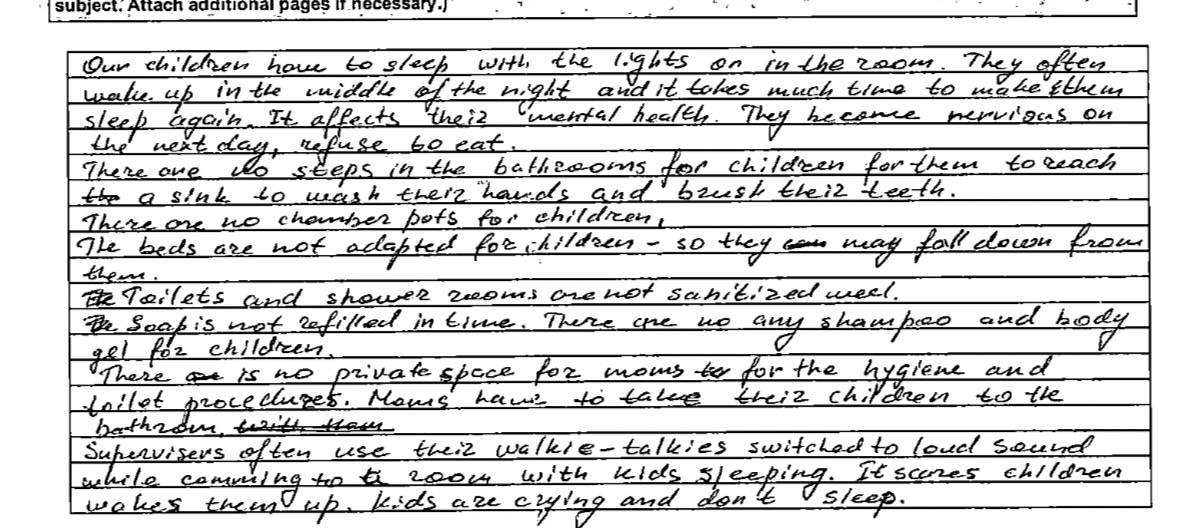 subject. Attach additional pages if necessary.)
Our children have to sleep with the lights on in the room. They often
wake up in the middle of the night and it takes much time to make them
sleep again. It affects their mental health. They become nervious on
the next day, refuse to eat.
There are no steps in the bathrooms for children for them to reach
the a sink to wash their hands and brush their teeth.
There are no chamber pots for children,
The beds are not adapted for children - so they can may fall down from
them.
The Toilets and shower rooms are not sanitized well.
The Soap is not refilled in time. There are no any shampoo and body
gel for children.
There are is no private space for moms to for the hygiene and
toilet procedures. Moms have to take their children to the
bathroom, with them
Supervisers often use their walkie-talkies switched to loud sound
while comming to a room with kids sleeping. It scares children
wakes them up. Kids are crying and don't sleep.